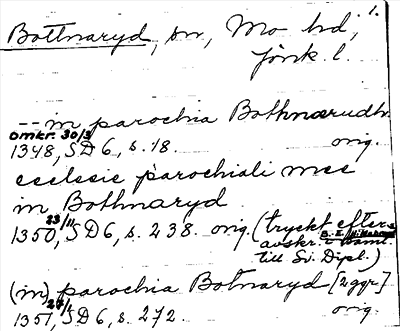 1.
Bottnaryd, sn, Mo hd,
Jönk. l.
-- in parochia Bothnærudh
omkr. 30/3
1348, SD 6, s. 18. orig.
ecclesie parochiali mee
in Bothnaryd
1350 23/11, SD 6, s. 238. orig. (tryckt efter
avskr. i saml.
till Sv. Dipl.)
(in) parochia Botnaryd [2 ggr]
1351, SD 6, s. 272. orig.